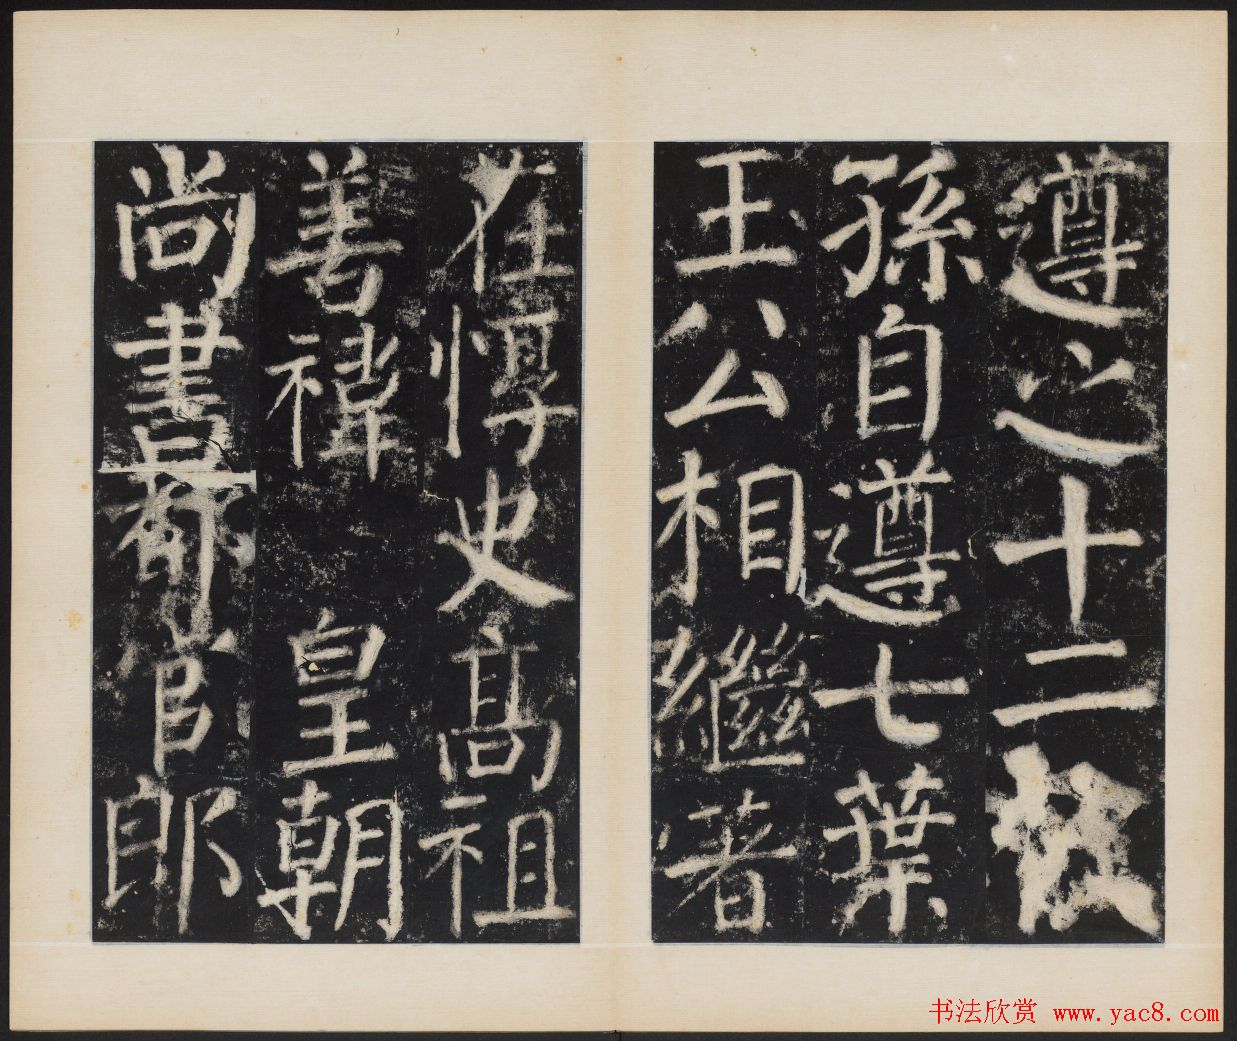 遵之十二
孫自遵七葉
王公相繼著
在惇史高祖
善禕皇朝
尚書都官郎
书法欣赏 www.yac8.com